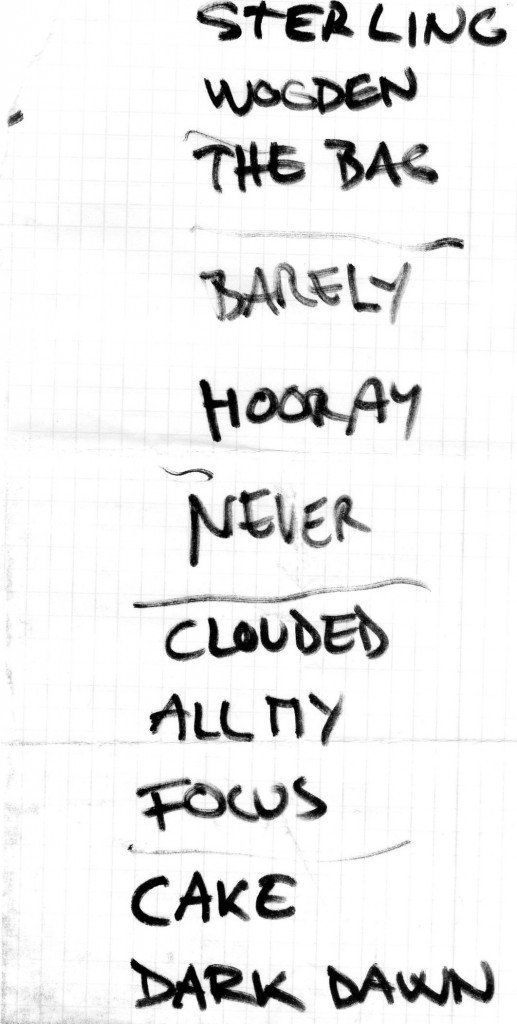 STERLING
WOGDEN
THE BAG
BARELY
HOORAY
NEVER
CLOUDED
ALL MY
FOCUS
CAKE
DARK DAWN